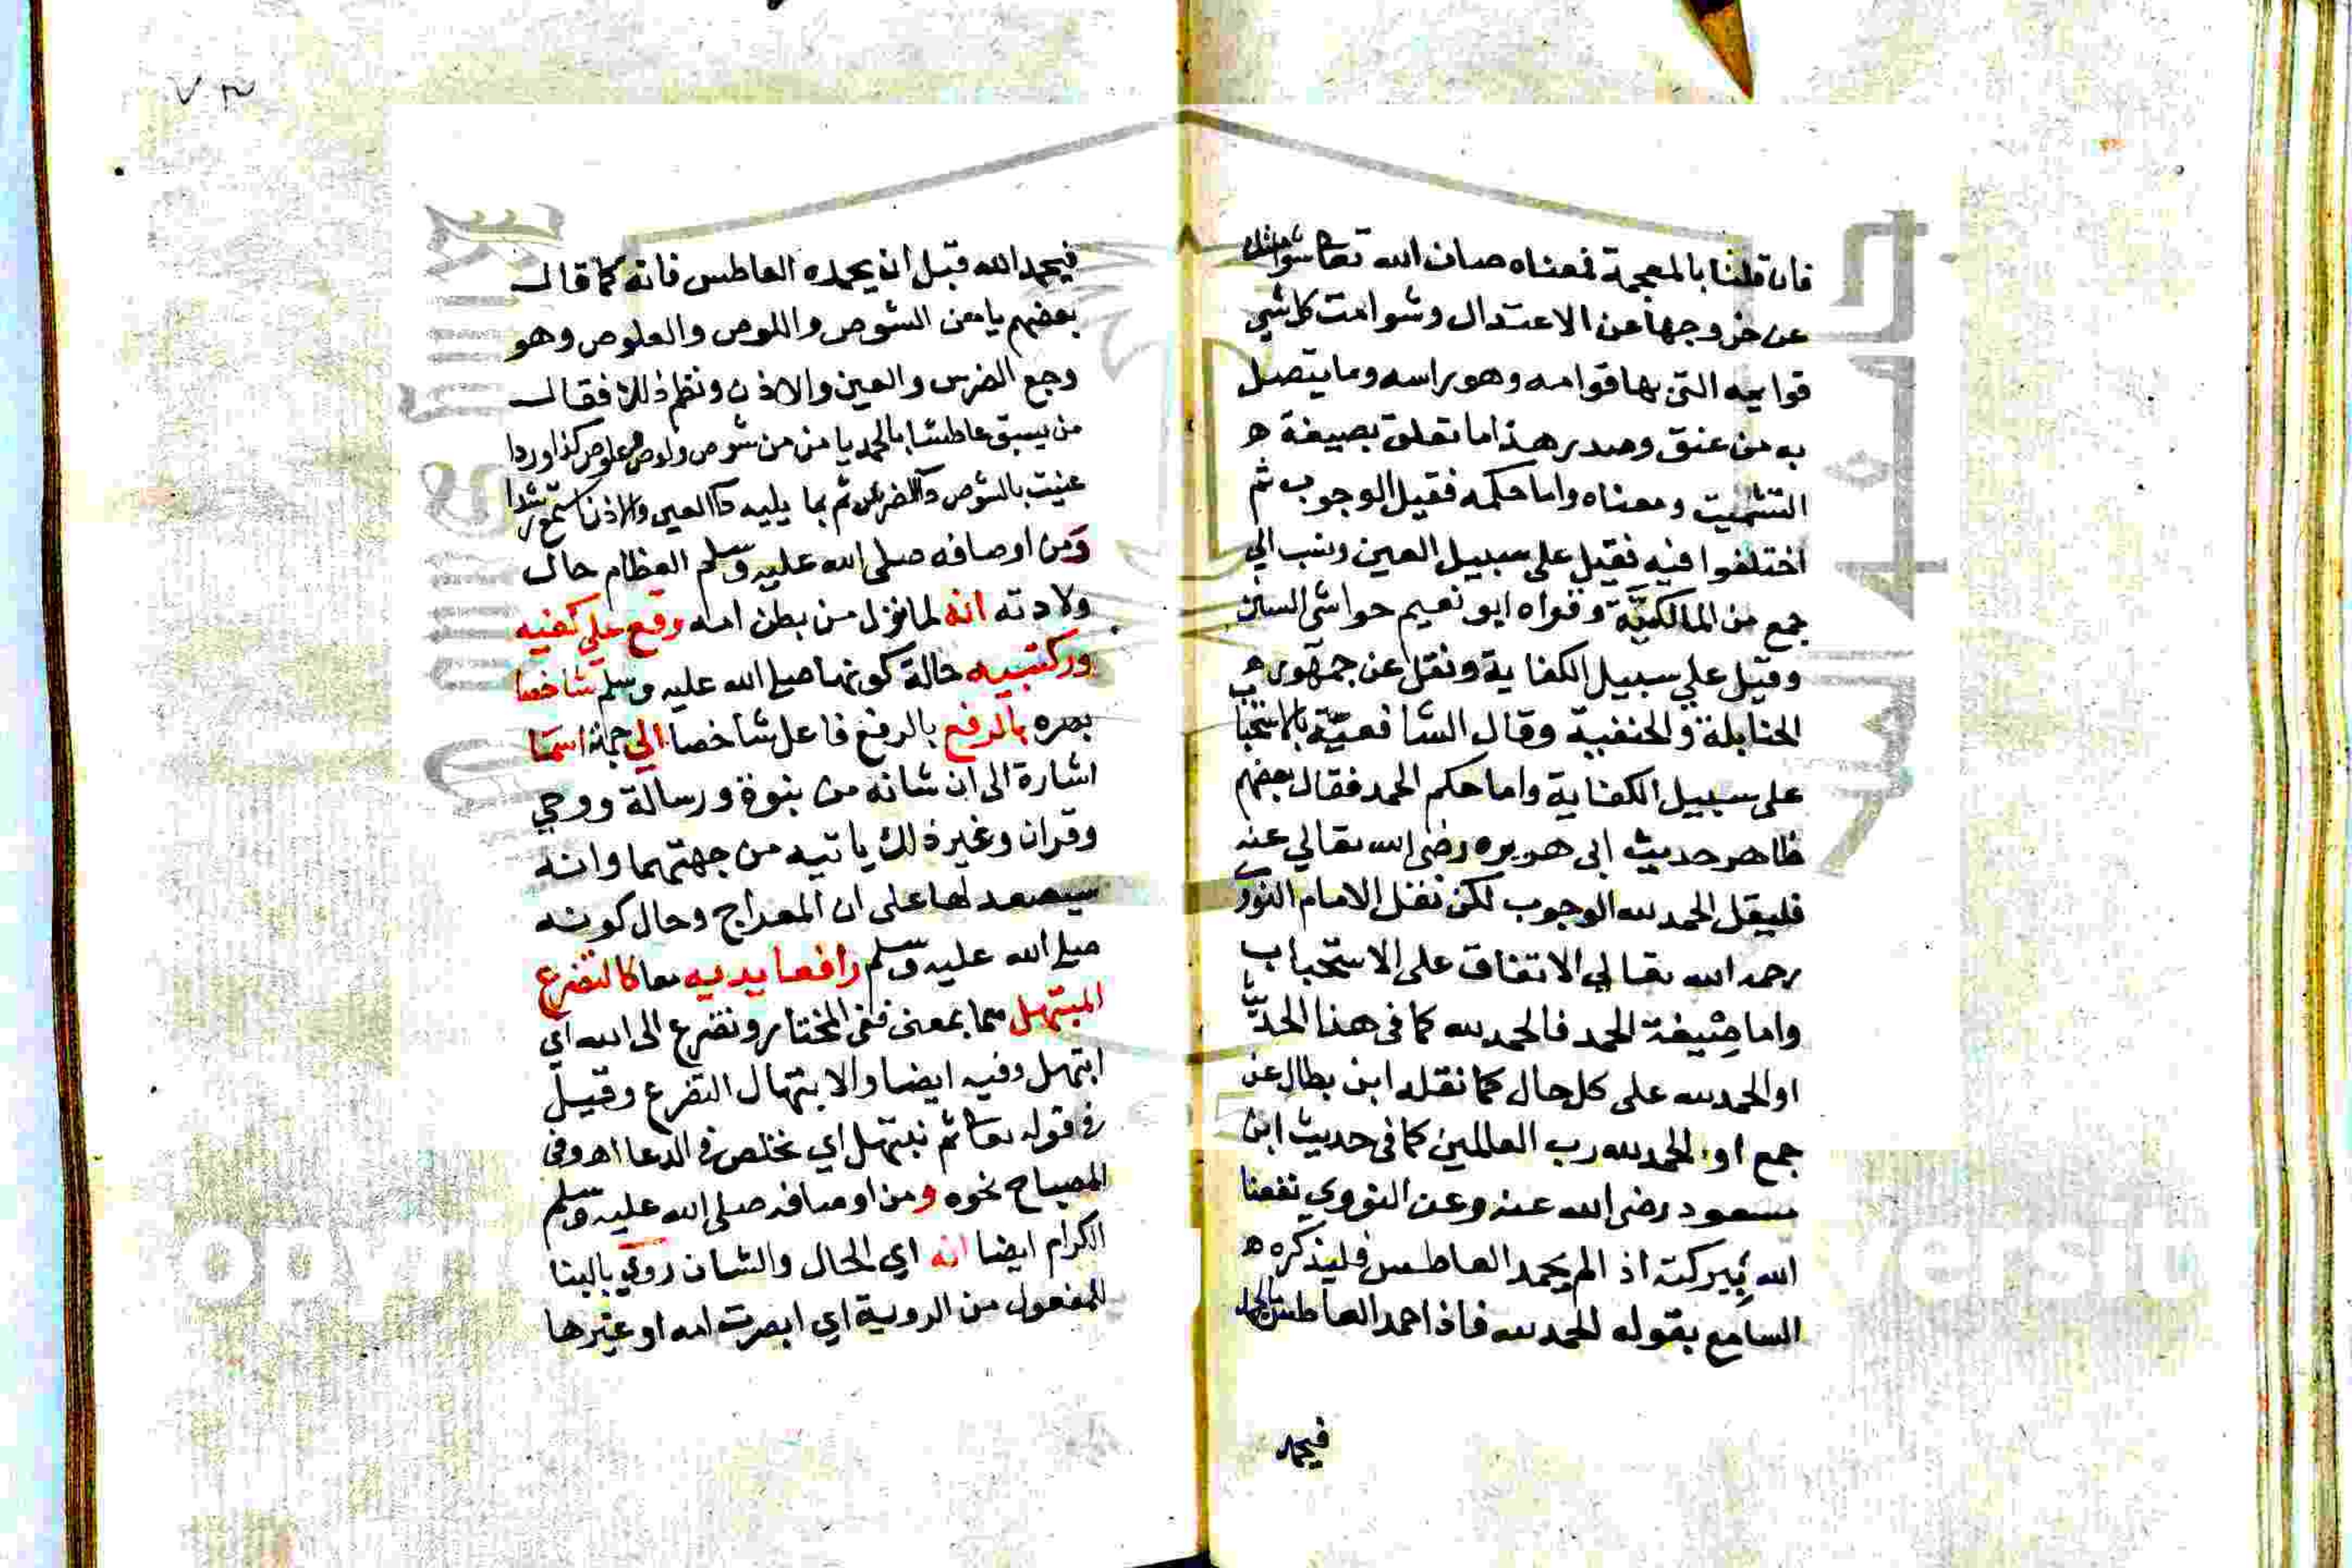 فان قلنا بالمعجمة فمعناه صان الله تعا شوامتك
عن خروجها عن الاعتدال وشوامت كل شي
قوايمه التي بها قوامه وهو راسه وما يتصل
به من عنق وصدر هذا ما تعلق بصيغة ه
التشميت ومعناه واما حكمه فقيل الوجوب ثم
اختلفوا فيه فقيل على سبيل العين ونسب الي
جمع من المالكية وقواه ابو نعيم حواشي السنن
وقيل علي سبيل الكفاية ونقل عن جمهور ه
الحنابلة والحنفية وقال الشافعية بالاستحباب
على سبيل الكفاية واما حكم الحمد فقال بعضهم
ظاهر حديث ابى هريره رضى الله تعالي عنه
فليقل الحمد لله الوجوب لكن نقل الامام النووي
رحمه الله تعالي الاتفاق على الاستحباب
واما صيغة الحمد فالحمد لله كما فى هذا الحديث
او الحمد لله على كل حال كما نقله ابن بطال عن
جمع او الحمد لله رب العالمين كما فى حديث ابن
مسعود رضى الله عنه وعن النووي نفعنا
الله ببركته اذ الم يحمد العاطس فليذكره ه
السامع بقوله الحمد لله فاذا حمد العاطس
فيحمد
٧٣
فيحمد الله قبل ان يحمده العاطس فانه كما قال
بعضهم يا من الشوص واللوص والعلوص وهو
وجع الضرس والعين والاذن ونظم ذلك فقال
من يسبق عاطسا بالحمد يا من من شوص ولوص وعلوص كذا وردا
عنيت بالشوص دآ الضرس ثم بما يليه دآ العين والاذن استمع رشدا
ومن اوصافه صلى الله عليه وسلم العظام حال
ولادته انه لما نزل من بطن امه وقع علي كفيه
وركبتيه حالة كونها صلى الله عليه وسلم شاخصا
بصره بالرفع بالرفع فاعل شاخصا الي جهة السما
اشارة الى ان شانه من نبوة ورسالة ووحي
وقران وغير ذلك ياتيه من جهتهما وانه
سيصعد لها على ان المعراج وحال كونه
صلى الله عليه وسلم رافعا يديه معا كالتضرع
المبتهل هما بمعنى ففى المختار وتضرع الى الله اي
ابتهل وفيه ايضا والابتهال التضرع وقيل
في قوله تعا ثم نبتهل اي نخلص في الدعا اه وفى
المصباح نحوه ومن اوصافه صلى الله عليه وسلم
الكرام ايضا انه اي الحال والشان روي بالبنا
للمفعول من الروية اي ابصرت امه او غيرها